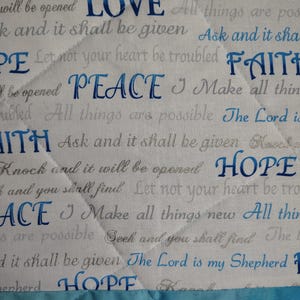 will be opened LOVE All things are poss
and it shall be given Ask and it sha
PE Let not your heart be troubled FAITH
be opened PEACE I Make all thing
troubled All things are possible The Lord is
AITH Ask and it shall be given Knock
Knock and it will be opened HOPE
k and you shall find Let not your heart be tro
ACE I Make all things new All thin
s are possible Seek and you shall find The
d it shall be given The Lord is my Shepherd
epherd HOPE